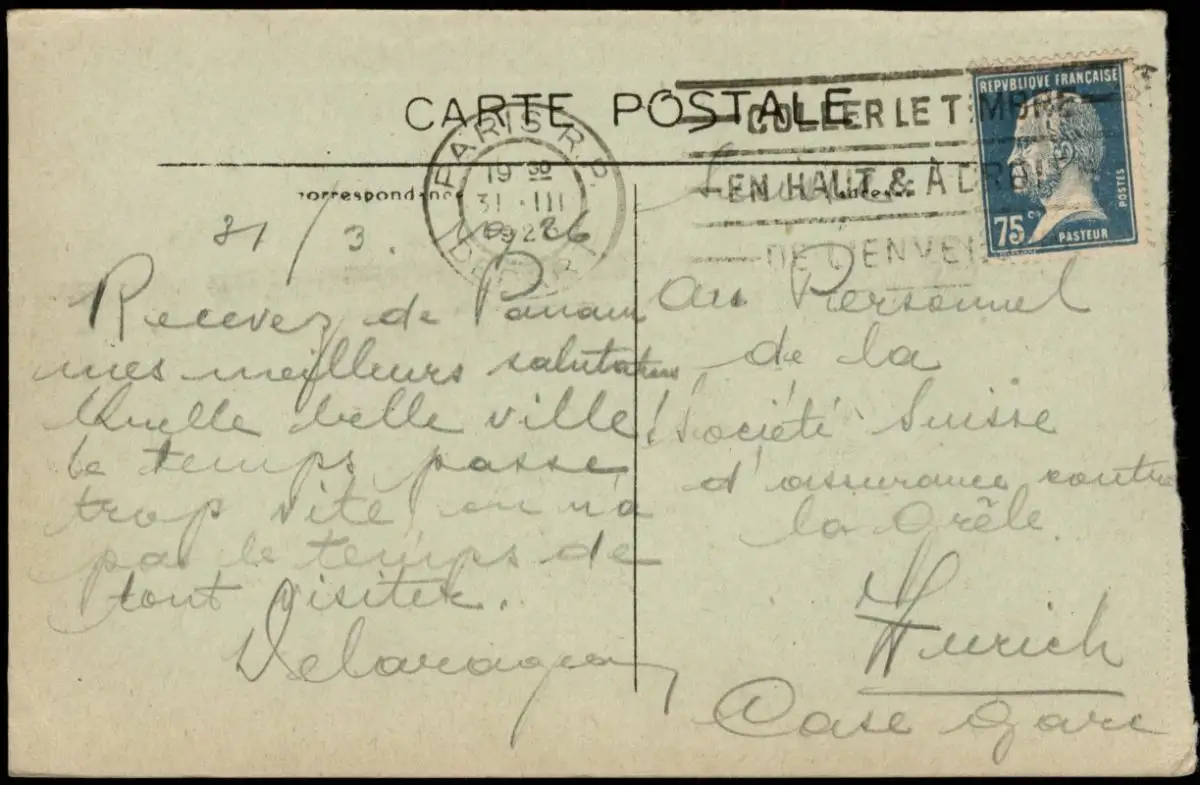 CARTE POSTALE
Correspondance
Adresse
PARIS R.P.
19 30
31 III
1926
DEPART
COLLER LE TIMBRE
EN HAUT & À DROITE
DE L'ENVEL
REPVBLIQVE FRANÇAISE
75c
POSTES
PASTEUR
31/3. 1926
Recevez de Panam
mes meilleurs salutations
Quelle belle ville!
le temps passe
trop vite, on n'a
pas le temps de
tout visiter.
Suisse
Au Personnel
de la
Société Suisse
d'assurance contre
la Grêle
Zurich
Case Gare